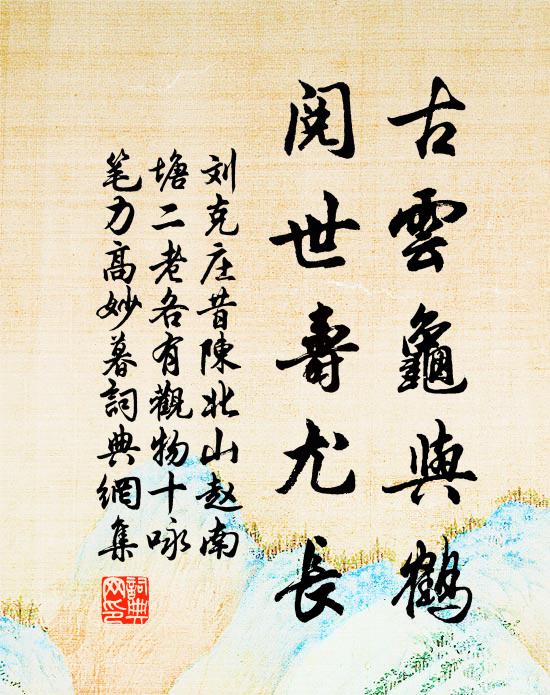 古雲龜與鶴
閱世壽尤長
刘克庄昔陳北山赵南
塘二老各有觀物十咏
笔力高妙暮詞典網集
詞典
网印